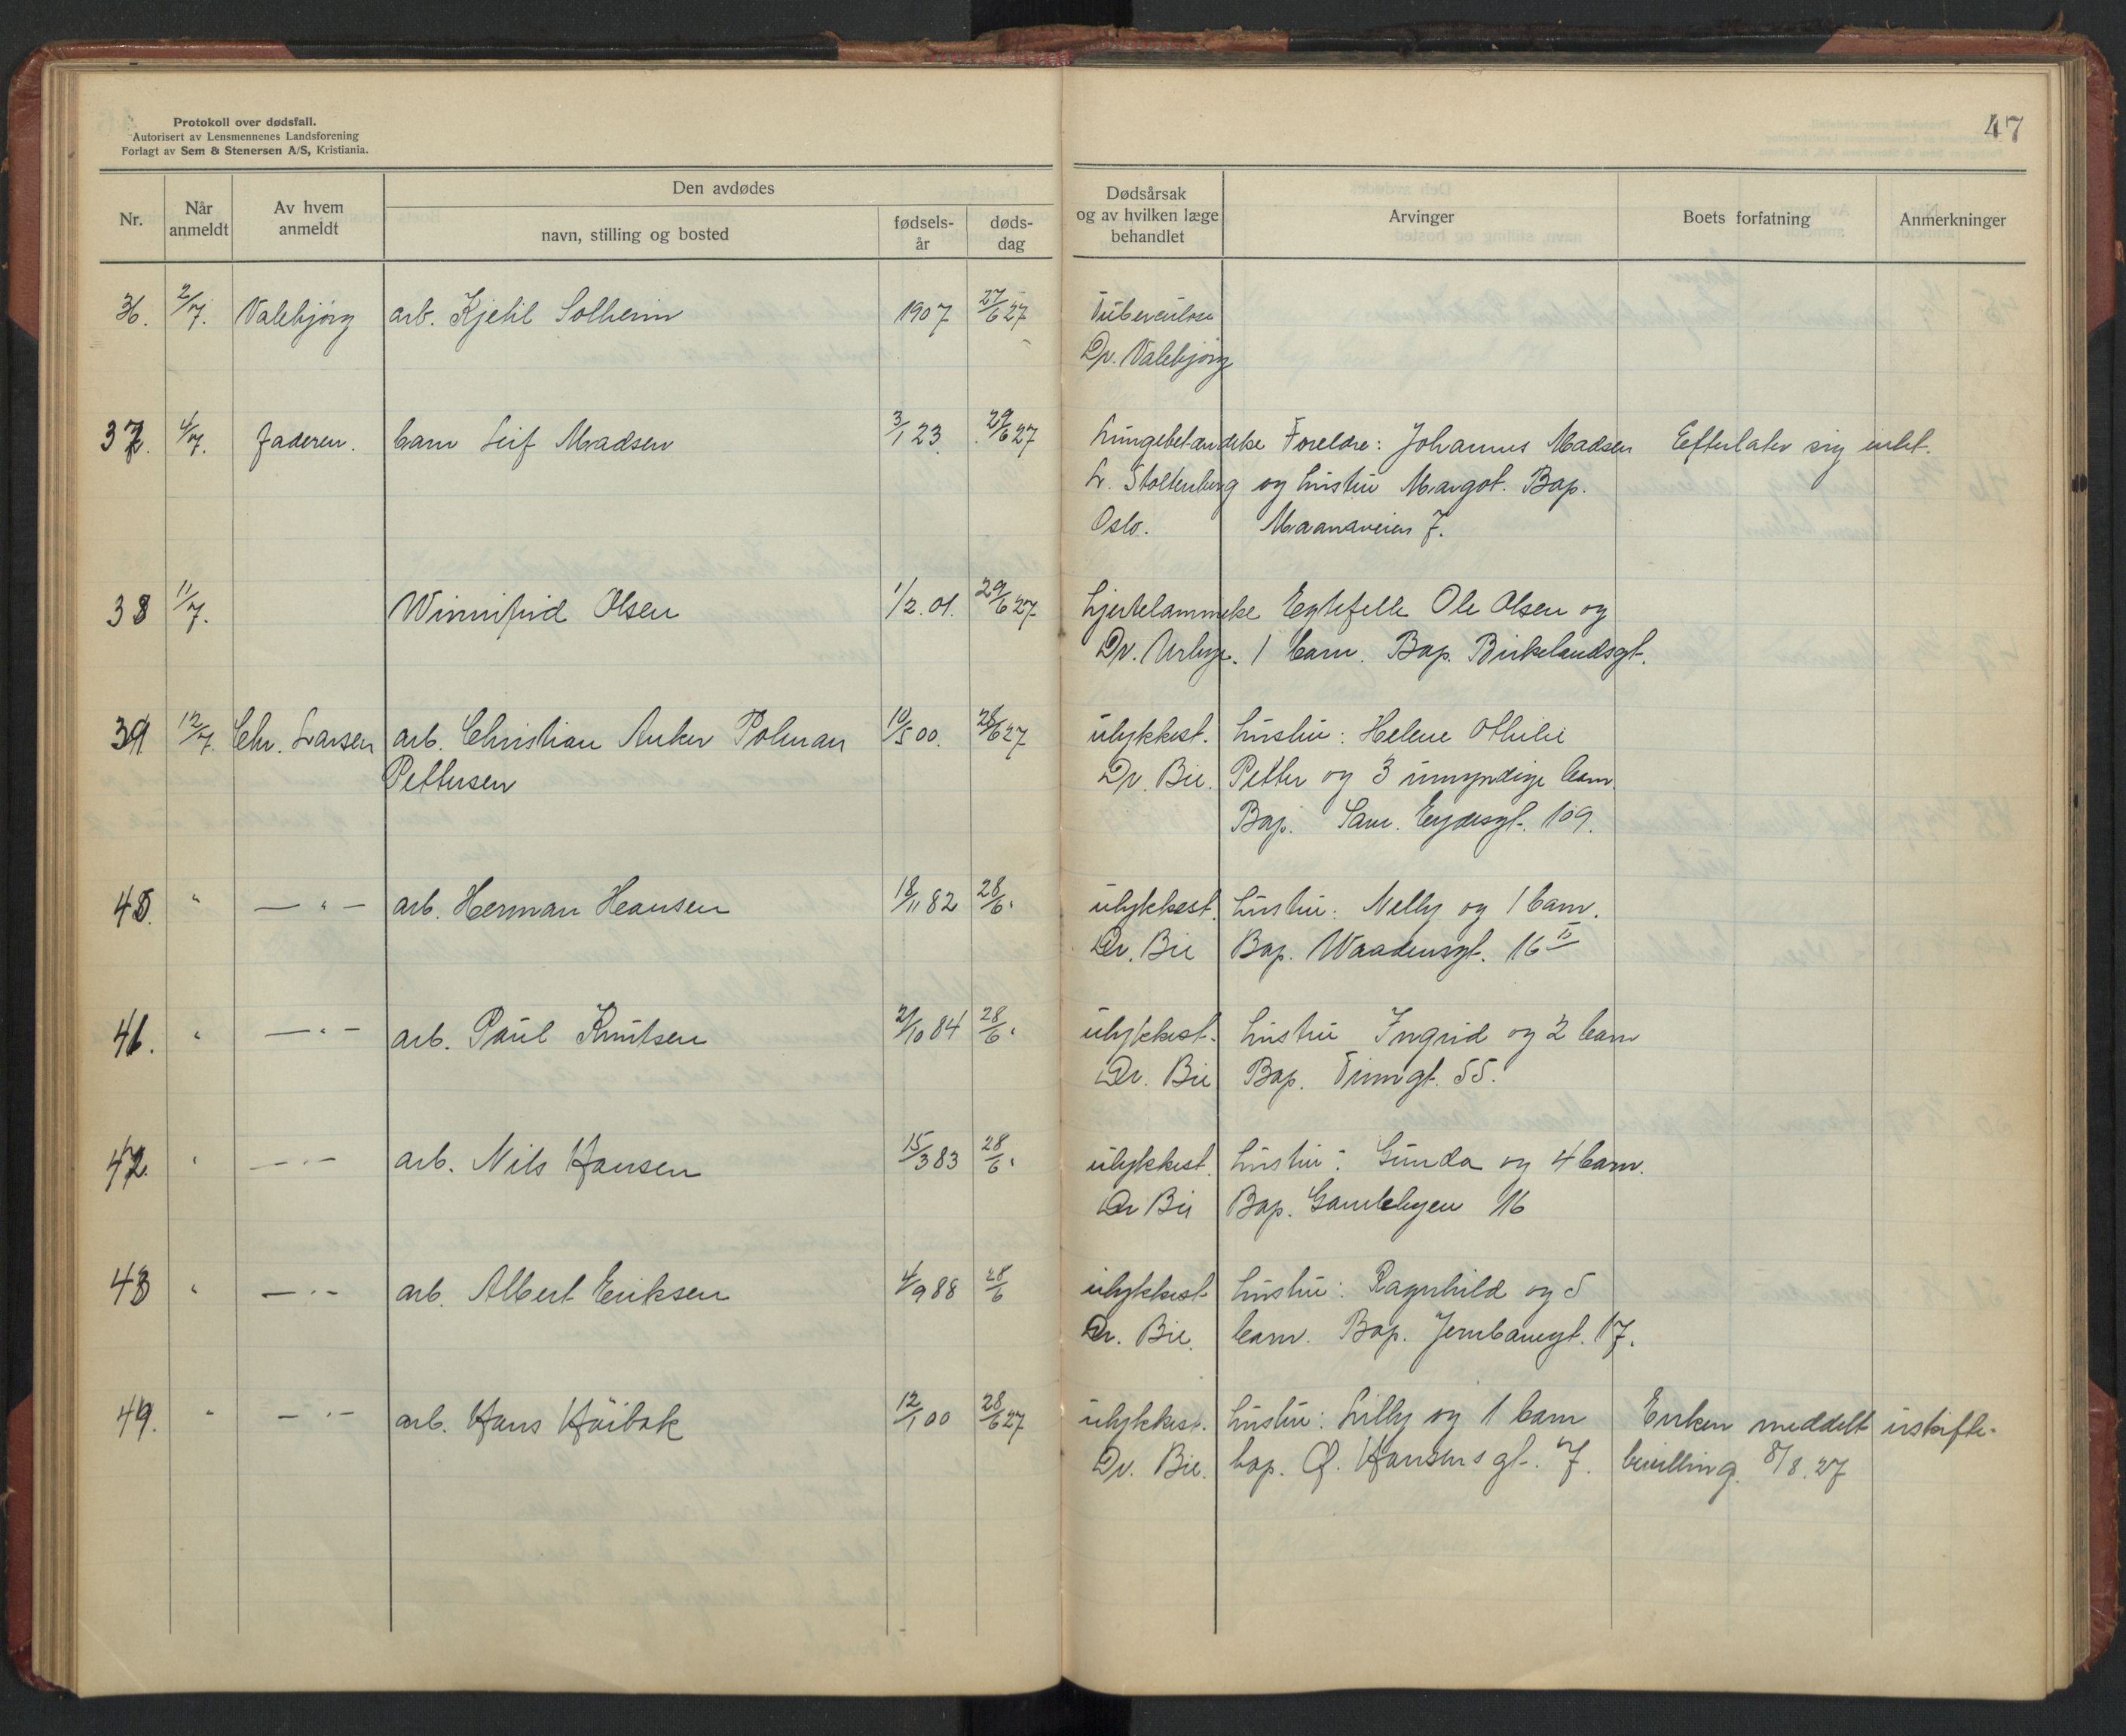 Protokoll over dødsfall.
Autorisert av Lensmennenes Landsforening
Forlagt av Sem & Stenersen A/S, Kristiania.
47
Nr.
Når anmeldt
Av hvem anmeldt
Den avdødes
navn, stilling og bosted
fødsels-år
døds-dag
Dødsårsak og av hvilken læge behandlet
Arvinger
Boets forfatning
Anmerkninger
36. 2/7. Valebjørg arb. Kjetil Solheim 1907 27/6 27 Tuberculose
Dr. Valebjørg
37. 4/7. Faderen. barn Leif Madsen 3/1 23. 29/6 27 Lungebetændelse Foreldre: Johannes Madsen Efterlater sig intet.
L. Stoltenberg og hustru Margot. Bop.
Oslo. Maanaveien 7.
38 11/7. Winnifrid Olsen 1/2. 01. 29/6 27. hjertelammelse Egtefelle Ole Olsen og
Dr. Urbye. 1 barn. Bop. Birkelandsgt.
39 12/7. Chr. Larsen arb. Christian Anker Polman 10/5 00. 28/6 27 ulykkest. hustru: Helene Othilie
Pettersen Dr. Bie. Petter og 3 umyndige barn.
Bop. Sam. Eydesgt. 109.
40. " — " — arb. Herman Hansen 18/11 82 28/6 " ulykkest. hustru: Nelly og 1 barn.
Dr. Bie Bop. Waadensgt. 16 II
41. " — " — arb. Paul Knutsen 21/10 84 28/6 " ulykkest. hustru Ingrid og 2 barn
Dr. Bie Bop. Tinngt. 55.
42. " — " — arb. Nils Hansen 15/3 83 28/6 " ulykkest. hustru: Gunda og 4 barn.
Dr Bie Bop. Gamlebyen 16
43 " — " — arb. Albert Eriksen 4/9 88 28/6 ulykkest hustru: Ragnhild og 5
Dr. Bie. barn. Bop. Jernbanegt. 17.
49. " — " — arb. Hans Høibak 12/1 00 28/6 27 ulykkest. hustru: Lilly og 1 barn Enken meddelt uskifte-
Dr. Bie. bop. O. Hansens gt. 7. bevilling. 8/8. 27